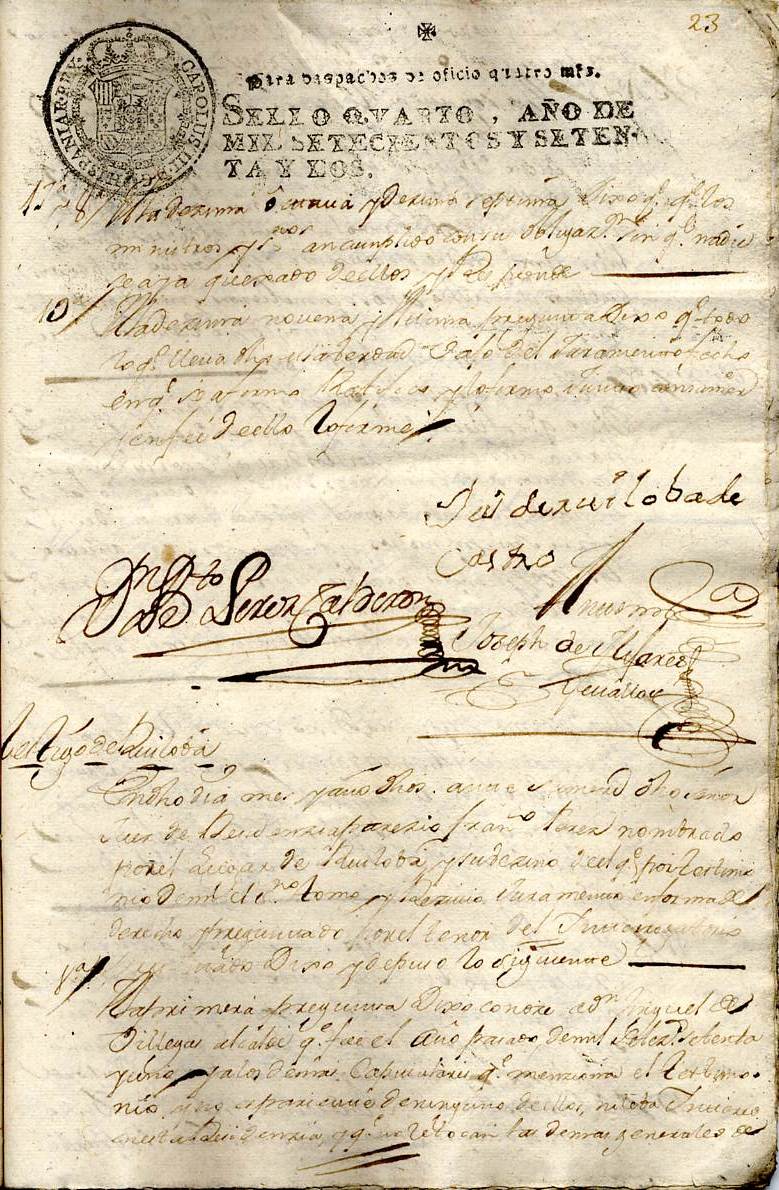 23
CAROLUS III D G HISPANIAR REX
Para despachos de oficio quatro mrs.
SELLO QVARTO, AÑO DE
MIL SETECIENTOS Y SETEN-
TA Y DOS.
Ala dezima octava y dezima septima Dixo q.e los
ministros y ss.nos an cumplido con su obligaz.on sin q.e nadie
se aya quexado de ellos y Responde
19/ Ala dezima novena y ultima pregunta Dixo q.e todo
lo q.e lleva dho es la berdad vajo del Juramento fecho
en q.e se afirmo Ratifico y lo firmo Junto con su merd
y en fee de ello lo firme
de Castro
D.n Perez Calderon
Ante mi
Joseph de
testigo de Quiloba
En dho dia mes y año dhos ante su merd dho señor
Juez de Residenzia parezio fran.co Perez nombrado
por el Lugar de Quiloba y vezino de el q.e por testimo
nio de mi el ss.no tomo y rezivio Juramento en forma de
derecho y preguntado por el tenor del Interrogatorio
Dixo y depuso lo siguiente
1ª/ Ala primera pregunta Dixo conoze a d.n Miguel de
Villegas alcalde q.e fue el año pasado de mil setez.s setenta
y uno y a los demas Capitulares q.e menziona el testimo-
nio, y no es pariente de ninguno de ellos, ni lleba Interes
en esta Residenzia, y q.e no le tocan las demas generales de